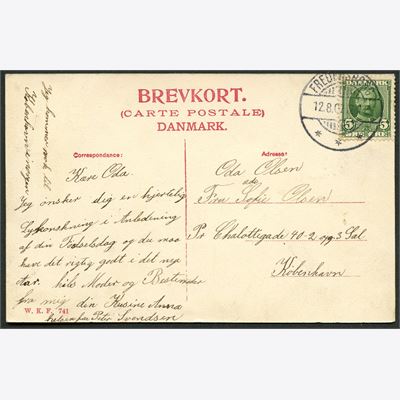 BREVKORT.
(CARTE POSTALE)
DANMARK.
Correspondance:
Kære Oda
Jeg ønsker dig en hjertelig
Lykønskning i Anledning
af din Fødselsdag og du maa
have det rigtig godt i det nye
Aar. hils Moder og Bestemoder
fra mig din Kusine Anna
hilsen fra Peter Svendsen
W. K. F. 741
Jeg kommer nok til
København
Adresse:
Oda Olsen
Fru Sofie Olsen
Pr Chalottegade 40-2 og 3 Sal
København
12.8.0
DANMARK
5 5